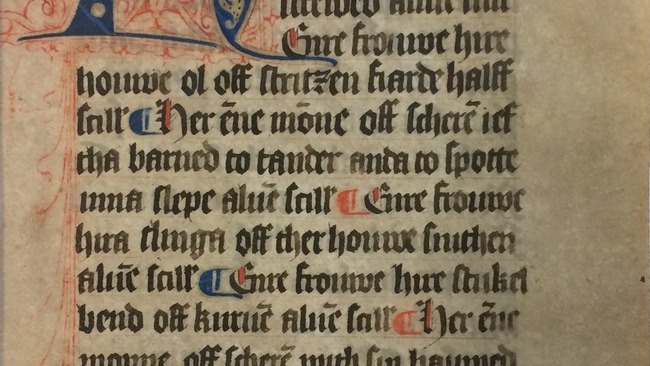 Enre frouwe hire
houwe ol off stritzen fiarde halff
scill Her ēne mōne off scherē ief
tha barned to tander anda to spotte
inna slepe aluē scill Enre frouwe
hira slinga off ther houwe sinthen
aluē scill Enre frouwe hire stukel
bend off kuruē aluē scill Her ēne
monne off scherē with sin